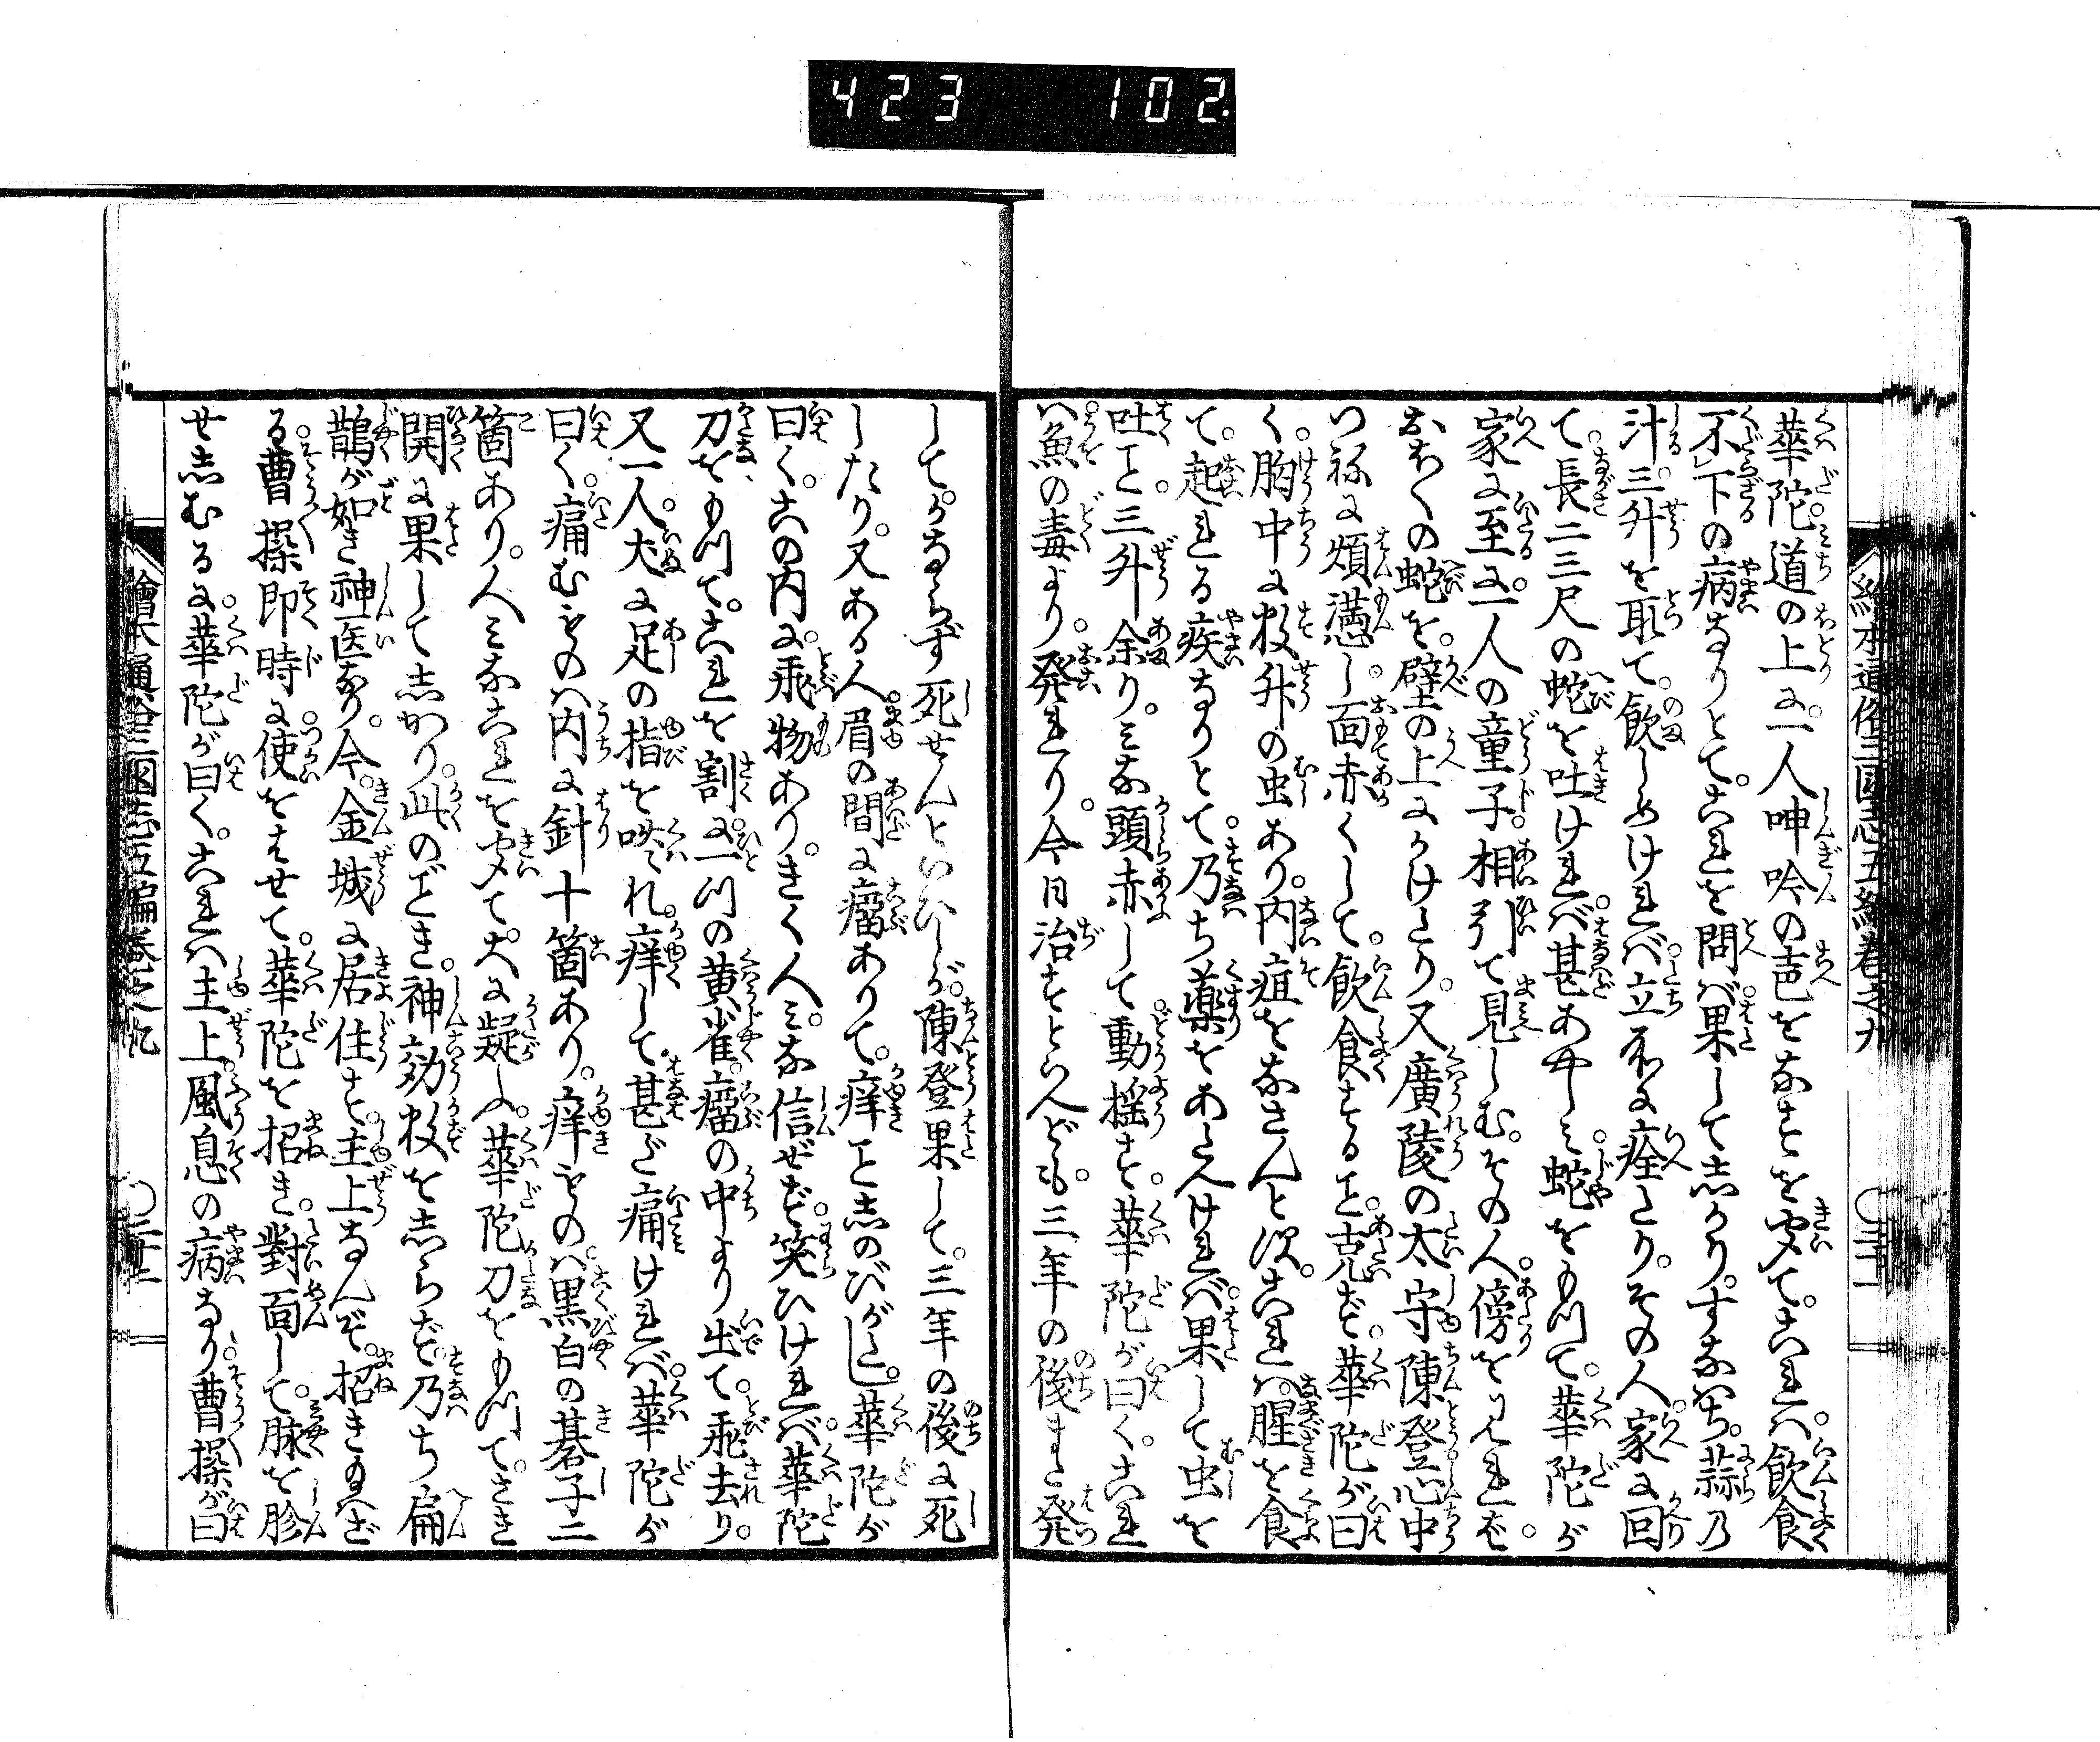 423 102
繪本通俗三國志五編巻之九
華陀道の上に一人呻吟の声をなすを聞て。これハ飲食
不下の病なりとて。これを問ば果して志かり。すなハち蒜乃
汁三升を取て。飲しめけれバ立所に痊たり。その人家に回
て。長二三尺の蛇を吐けれバ甚あやしミ蛇をもつて。華陀が
家に至に。一人の童子相引て見しむ。その人傍をみれバ。
おほくの蛇を。壁の上にかけたり。又廣陵の太守陳登心中
つねに煩懣し。面赤くして。飲食することあたはず。華陀が曰
く。胸中に数升の虫あり。内疽をなさんとす。これハ腥を食
て。起れる疾なりとて乃ち薬をあたへけれバ。果して虫を
吐こと。三升余り。ミな頭赤して動揺す。華陀が曰く。これ
ハ魚の毒より。発れり。今日治すといへども。三年の後また発
して。かならず死せんといひしが。陳登果して。三年の後に死
したり。又ある人眉の間に瘤ありて。痒こと志のびがたし。華陀が
曰く。この内に飛物あり。きく人ミな信ぜず。笑ひけれバ華陀
刀をもつて。これを割に。一つの黄雀。瘤の中より出て。飛去り。
又一人。犬に足の指を咬れ。痒して甚ど痛けれバ。華陀が
曰く。痛むものハ内に針十箇あり。痒ものハ。黒白の碁子二
箇あり。人ミなこれを聞て。大に疑ふ。華陀刀をもつて。さき
開に果して志かり。此のごとき。神効数を志らず。乃ち扁
鵲が如き神医なり。今。金城に居住す。主上なんぞ。招き玉ハざ
る。曹操即時に使をはせて。華陀を招き。對面して。脉を胗
せ志むるに。華陀が曰く。これハ主上。風息の病なり。曹操が曰
繪本通俗三國志五編巻之九